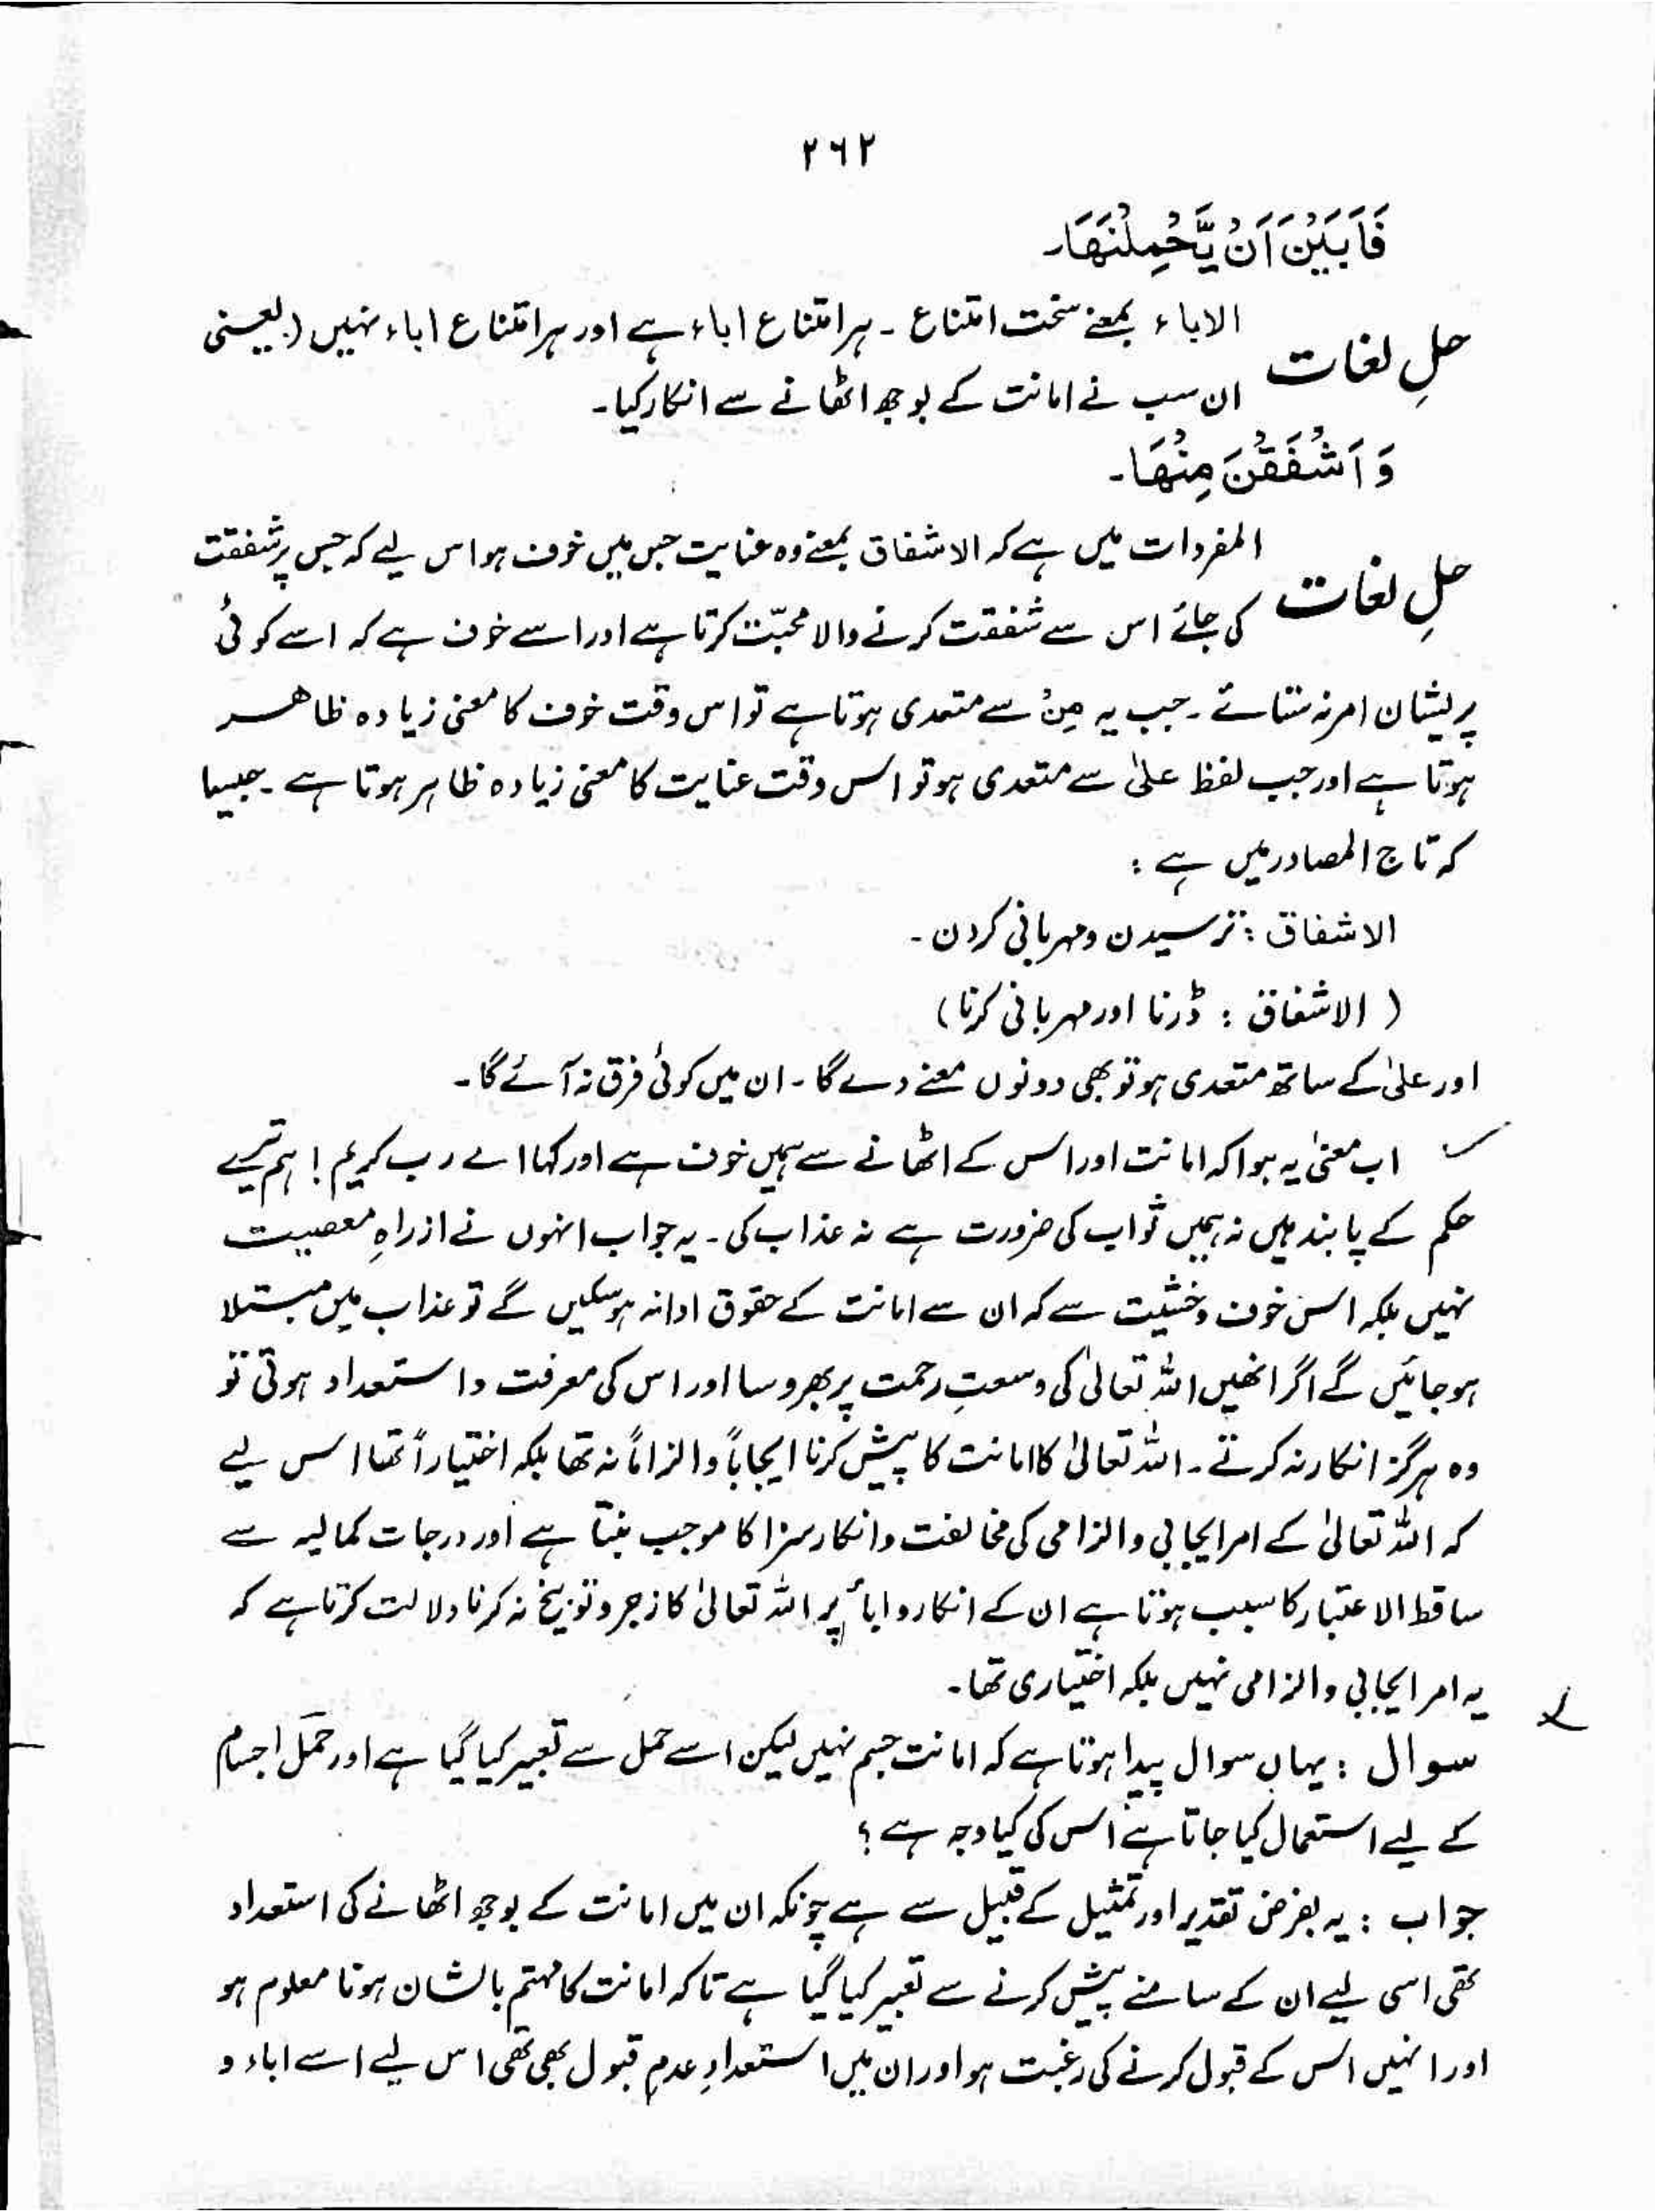 ۲۶۲
فَاَبَيْنَ اَنْ يَّحْمِلْنَهَا۔
حلِ لغات الاباء بمعنے سخت امتناع ۔ ہر امتناع اباء ہے اور ہر امتناع اباء نہیں (یعنی
ان سب نے امانت کے بوجھ اٹھانے سے انکار کیا۔
وَ اَشْفَقْنَ مِنْهَا۔
حلِ لغات المفردات میں ہے کہ الاشفاق بمعنے وہ عنایت جس میں خوف ہو اس لیے کہ جس پر شفقت
کی جائے اس سے شفقت کرنے والا محبّت کرتا ہے اور اسے خوف ہے کہ اسے کوئی
پریشان امر نہ ستائے ۔ جب یہ مِنْ سے متعدی ہوتا ہے تو اس وقت خوف کا معنی زیادہ ظاہر
ہوتا ہے اور جب لفظ علیٰ سے متعدی ہو تو اس وقت عنایت کا معنی زیادہ ظاہر ہوتا ہے ۔ جیسا
کہ تاج المصادر میں ہے :
الاشفاق : ترسیدن و مہربانی کردن ۔
( الاشفاق : ڈرنا اور مہربانی کرنا )
اور علیٰ کے ساتھ متعدی ہو تو بھی دونوں معنے دے گا ۔ ان میں کوئی فرق نہ آئے گا ۔
اب معنیٰ یہ ہوا کہ امانت اور اس کے اٹھانے سے ہمیں خوف ہے اور کہا اے رب کریم ! ہم تیرے
حکم کے پابند ہیں نہ ہمیں ثواب کی ضرورت ہے نہ عذاب کی ۔ یہ جواب انہوں نے ازراہِ معصیت
نہیں بلکہ اس خوف و خشیت سے کہ ان سے امانت کے حقوق ادا نہ ہو سکیں گے تو عذاب میں مبتلا
ہو جائیں گے اگر انھیں اللہ تعالیٰ کی وسعتِ رحمت پر بھروسا اور اس کی معرفت و استعداد ہوتی تو
وہ ہرگز انکار نہ کرتے ۔ اللہ تعالیٰ کا امانت کا پیش کرنا ایجاباً و الزاماً نہ تھا بلکہ اختیاراً تھا اس لیے
کہ اللہ تعالیٰ کے امر ایجابی و الزامی کی مخالفت و انکار سزا کا موجب بنتا ہے اور درجات کمالیہ سے
ساقط الاعتبار کا سبب ہوتا ہے ان کے انکار و اباٴ پر اللہ تعالیٰ کا زجر و توبیخ نہ کرنا دلالت کرتا ہے کہ
یہ امر ایجابی و الزامی نہیں بلکہ اختیاری تھا ۔
سوال : یہاں سوال پیدا ہوتا ہے کہ امانت جسم نہیں لیکن اسے حمل سے تعبیر کیا گیا ہے اور حمل اجسام
کے لیے استعمال کیا جاتا ہے اس کی کیا وجہ ہے ؟
جواب : یہ بفرض تقدیر اور تمثیل کے قبیل سے ہے چونکہ ان میں امانت کے بوجھ اٹھانے کی استعداد
تھی اسی لیے ان کے سامنے پیش کرنے سے تعبیر کیا گیا ہے تاکہ امانت کا مہتم بالشان ہونا معلوم ہو
اور انہیں اس کے قبول کرنے کی رغبت ہو اور ان میں استعدادِ عدمِ قبول بھی تھی اس لیے اسے اباء و